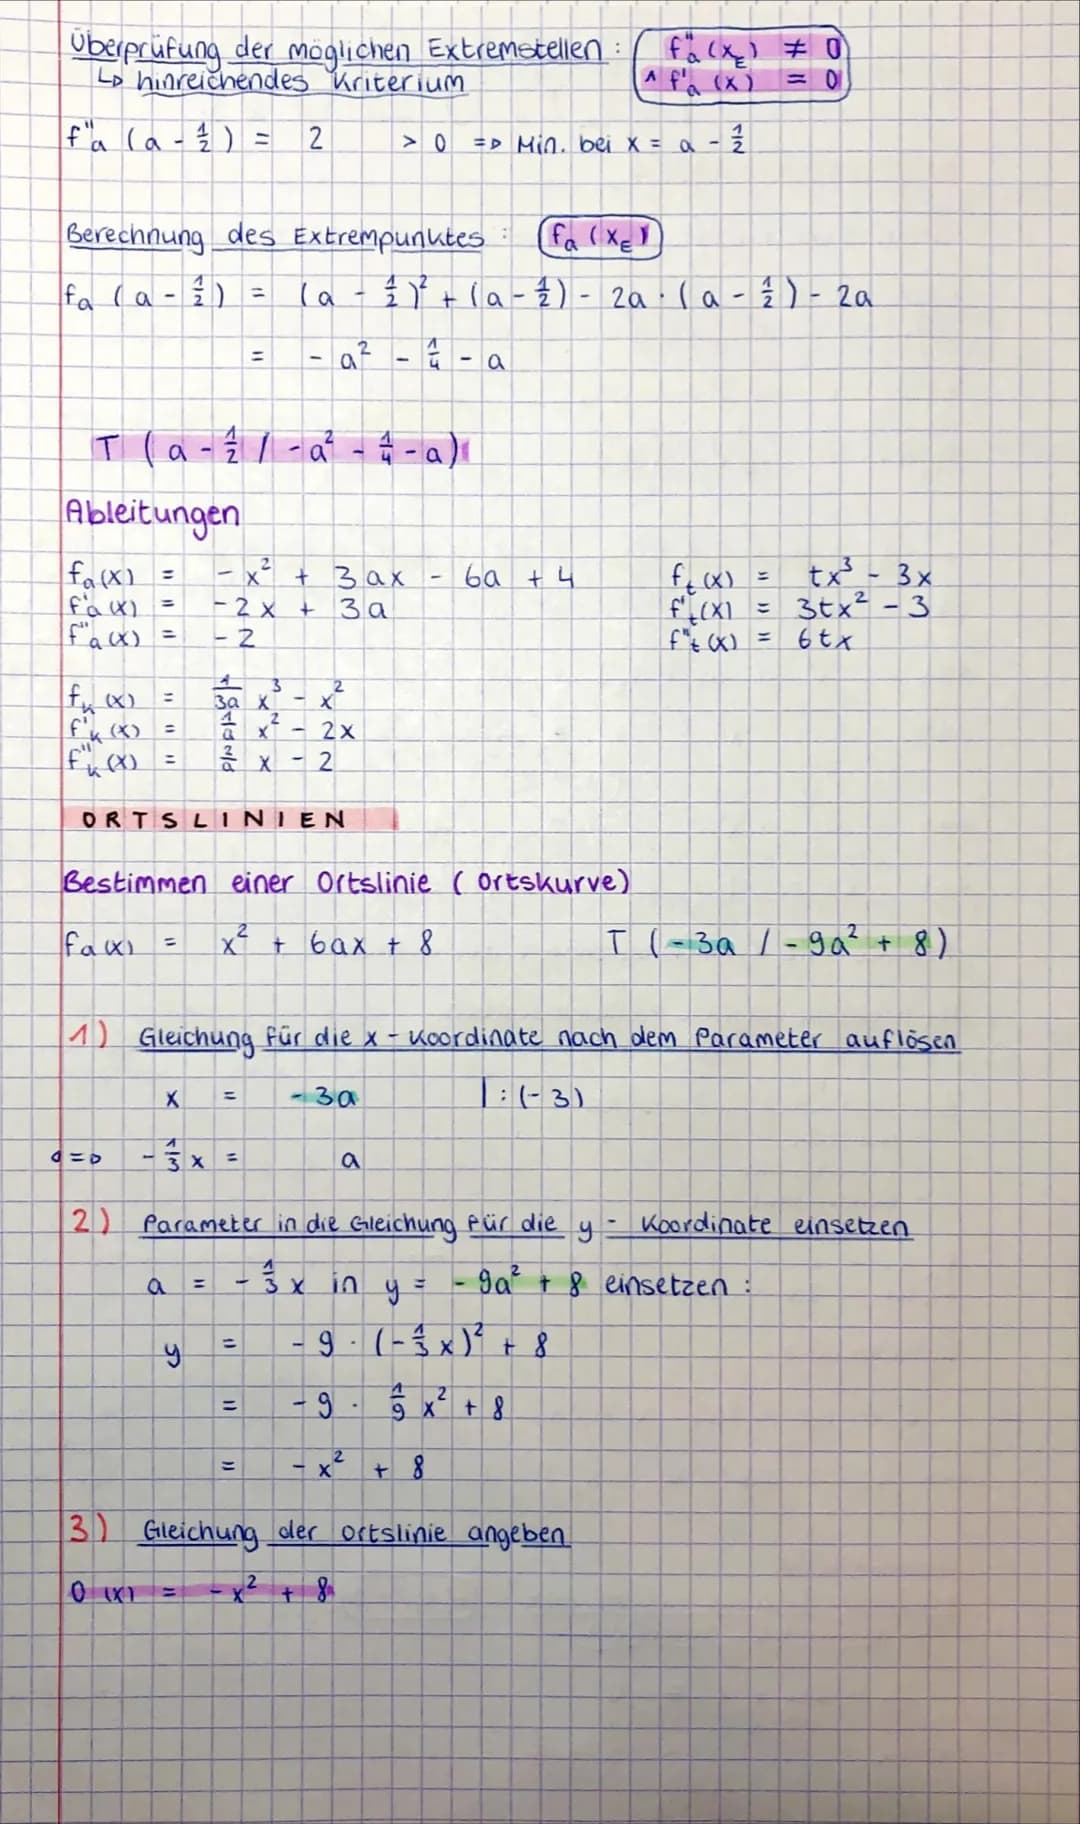 Überprüfung der möglichen Extremstellen : f"a (xE) ≠ 0
↳ hinreichendes Kriterium ∧ f'a (x) = 0
f"a (a - 1/2) = 2 > 0 => Min. bei x = a - 1/2
Berechnung des Extrempunktes : fa (xE)
fa (a - 1/2) = (a - 1/2)² + (a - 1/2) - 2a · (a - 1/2) - 2a
= - a² - 1/4 - a
T (a - 1/2 / -a² - 1/4 - a)
Ableitungen
fa(x) = - x² + 3ax - 6a + 4 ft(x) = tx³ - 3x
f'a(x) = - 2x + 3a f't(x) = 3tx² - 3
f"a(x) = - 2 f"t(x) = 6tx
fk(x) = 1/3a x³ - x²
f'k(x) = 1/a x² - 2x
f"k(x) = 2/a x - 2
ORTSLINIEN
Bestimmen einer Ortslinie (Ortskurve)
fa(x) = x² + 6ax + 8 T (-3a / -9a² + 8)
1) Gleichung für die x - Koordinate nach dem Parameter auflösen
x = - 3a | : (-3)
<=> - 1/3 x = a
2) Parameter in die Gleichung für die y - Koordinate einsetzen
a = - 1/3 x in y = - 9a² + 8 einsetzen :
y = - 9 · (- 1/3 x)² + 8
= - 9 · 1/9 x² + 8
= - x² + 8
3) Gleichung der Ortslinie angeben
O (x) = - x² + 8